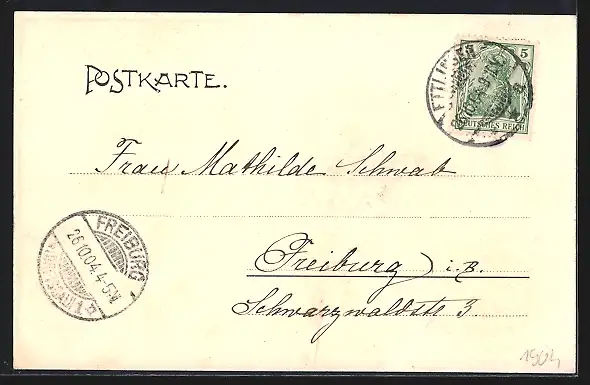 POSTKARTE.
ETTLINGEN
5
DEUTSCHES REICH
Frau Mathilde Schwab
FREIBURG
26.10.04.4-5N.
Freiburg i. B.
Schwarzwaldstr 3
1904